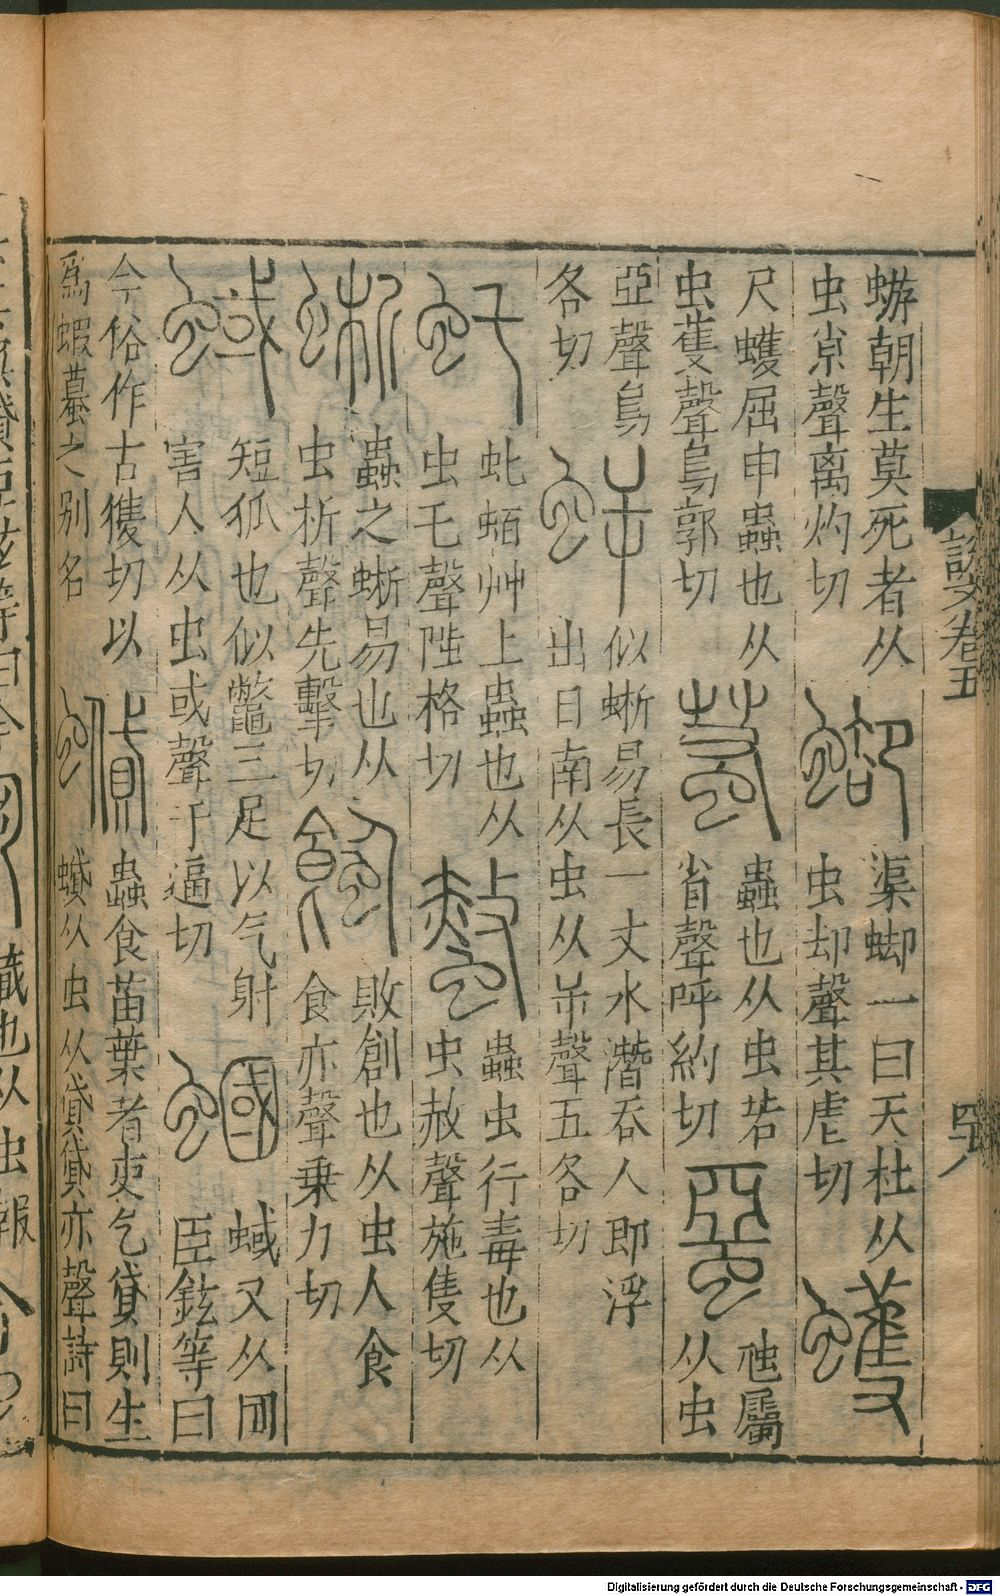 蝣朝生莫死者从
虫尞聲离灼切
渠𧊤一曰天杜从
虫却聲其虐切
蠖
尺蠖屈申蟲也从
虫蒦聲烏郭切
蠚
蟲也从虫若
省聲呼約切
蝁
虺屬
从虫
亞聲烏
各切
似蜥易長一丈水潛吞人即浮
出日南从虫从屰聲五各切
虴
虴蛨艸上蟲也从
虫乇聲陟格切
螫
蟲虫行毒也从
虫赦聲施隻切
蜥
蟲之蜥易也从
虫析聲先擊切
蝕
敗創也从虫人食
食亦聲乘力切
蜮
短狐也似鼈三足以气射
害人从虫或聲于逼切
蟈
蜮又从囯
臣鉉等曰
今俗作古獲切以
爲蝦蟇之别名
蟘
蟲食苗葉者吏乞貸則生
蟘从虫从貸貸亦聲詩曰
說文卷五
Digitalisierung gefördert durch die Deutsche Forschungsgemeinschaft - DFG